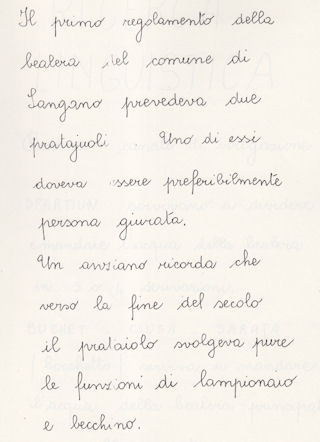 Il primo regolamento della
bealera del comune di
Sangano prevedeva due
pratajuoli Uno di essi
doveva essere preferibilmente
persona giurata.
Un anziano ricorda che
verso la fine del secolo
il prataiolo svolgeva pure
le funzioni di lampionaio
e becchino.